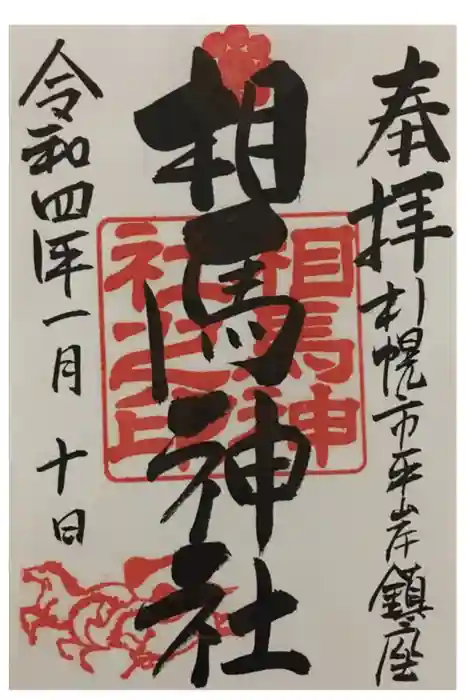 奉拝
札幌市平岸鎮座
相馬神社
相馬神
社之印
令和四年一月十日